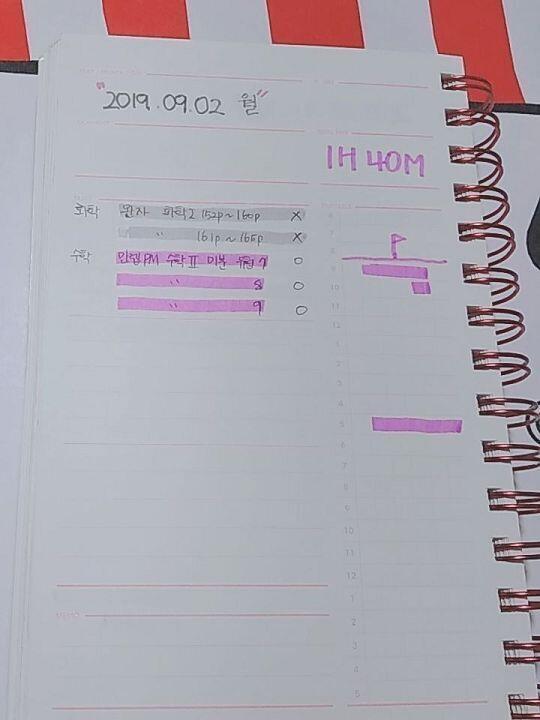 "2019.09.02 월"
1H 40M
화학 완자 화학2 152p~160p X
〃 161p~165p X
수학 만렙PM 수학II 미분 유형 7 O
〃 8 O
〃 9 O
6
7
8
9
10
11
12
1
2
3
4
5
6
7
8
9
10
11
12
1
2
3
4
5
MEMO